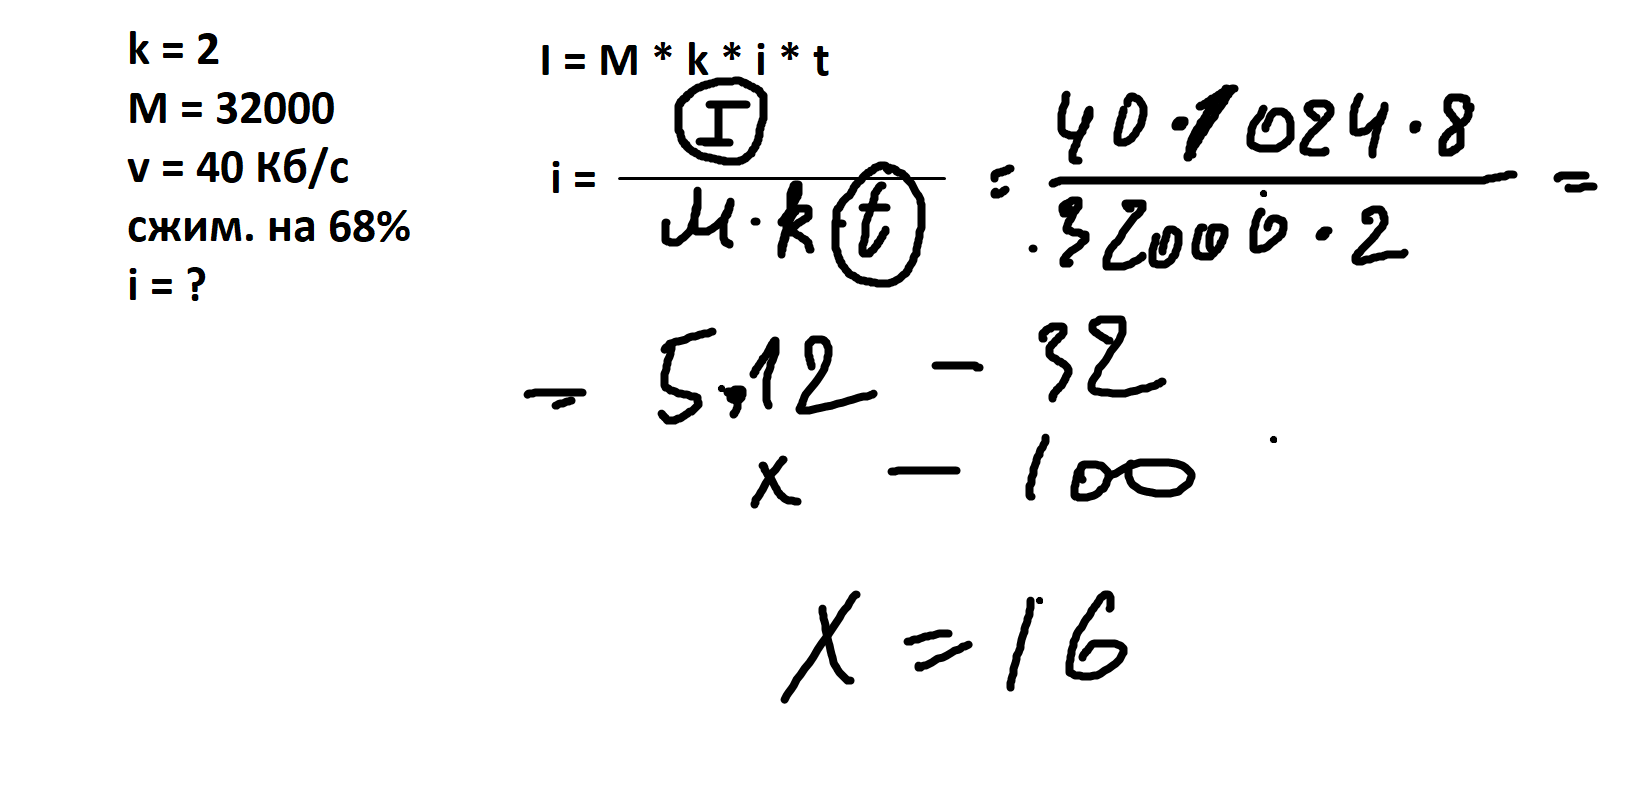 k = 2
M = 32000
v = 40 Кб/с
сжим. на 68%
i = ?
I = M * k * i * t
i = I / M · k t = 40 · 1024 · 8 / 32000 · 2 =
= 5,12 — 32
x — 100
X = 16